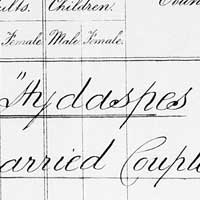 ults. Children.
Female. Male Female.
"Hydaspes
arried Couple